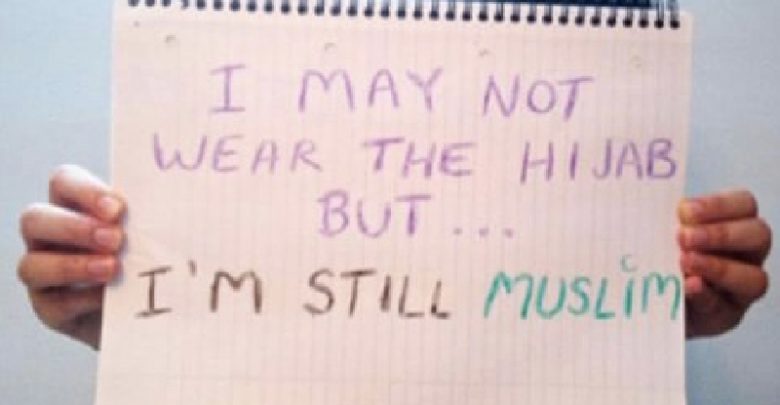 I MAY NOT
WEAR THE HIJAB
BUT...
I'M STILL MUSLIM